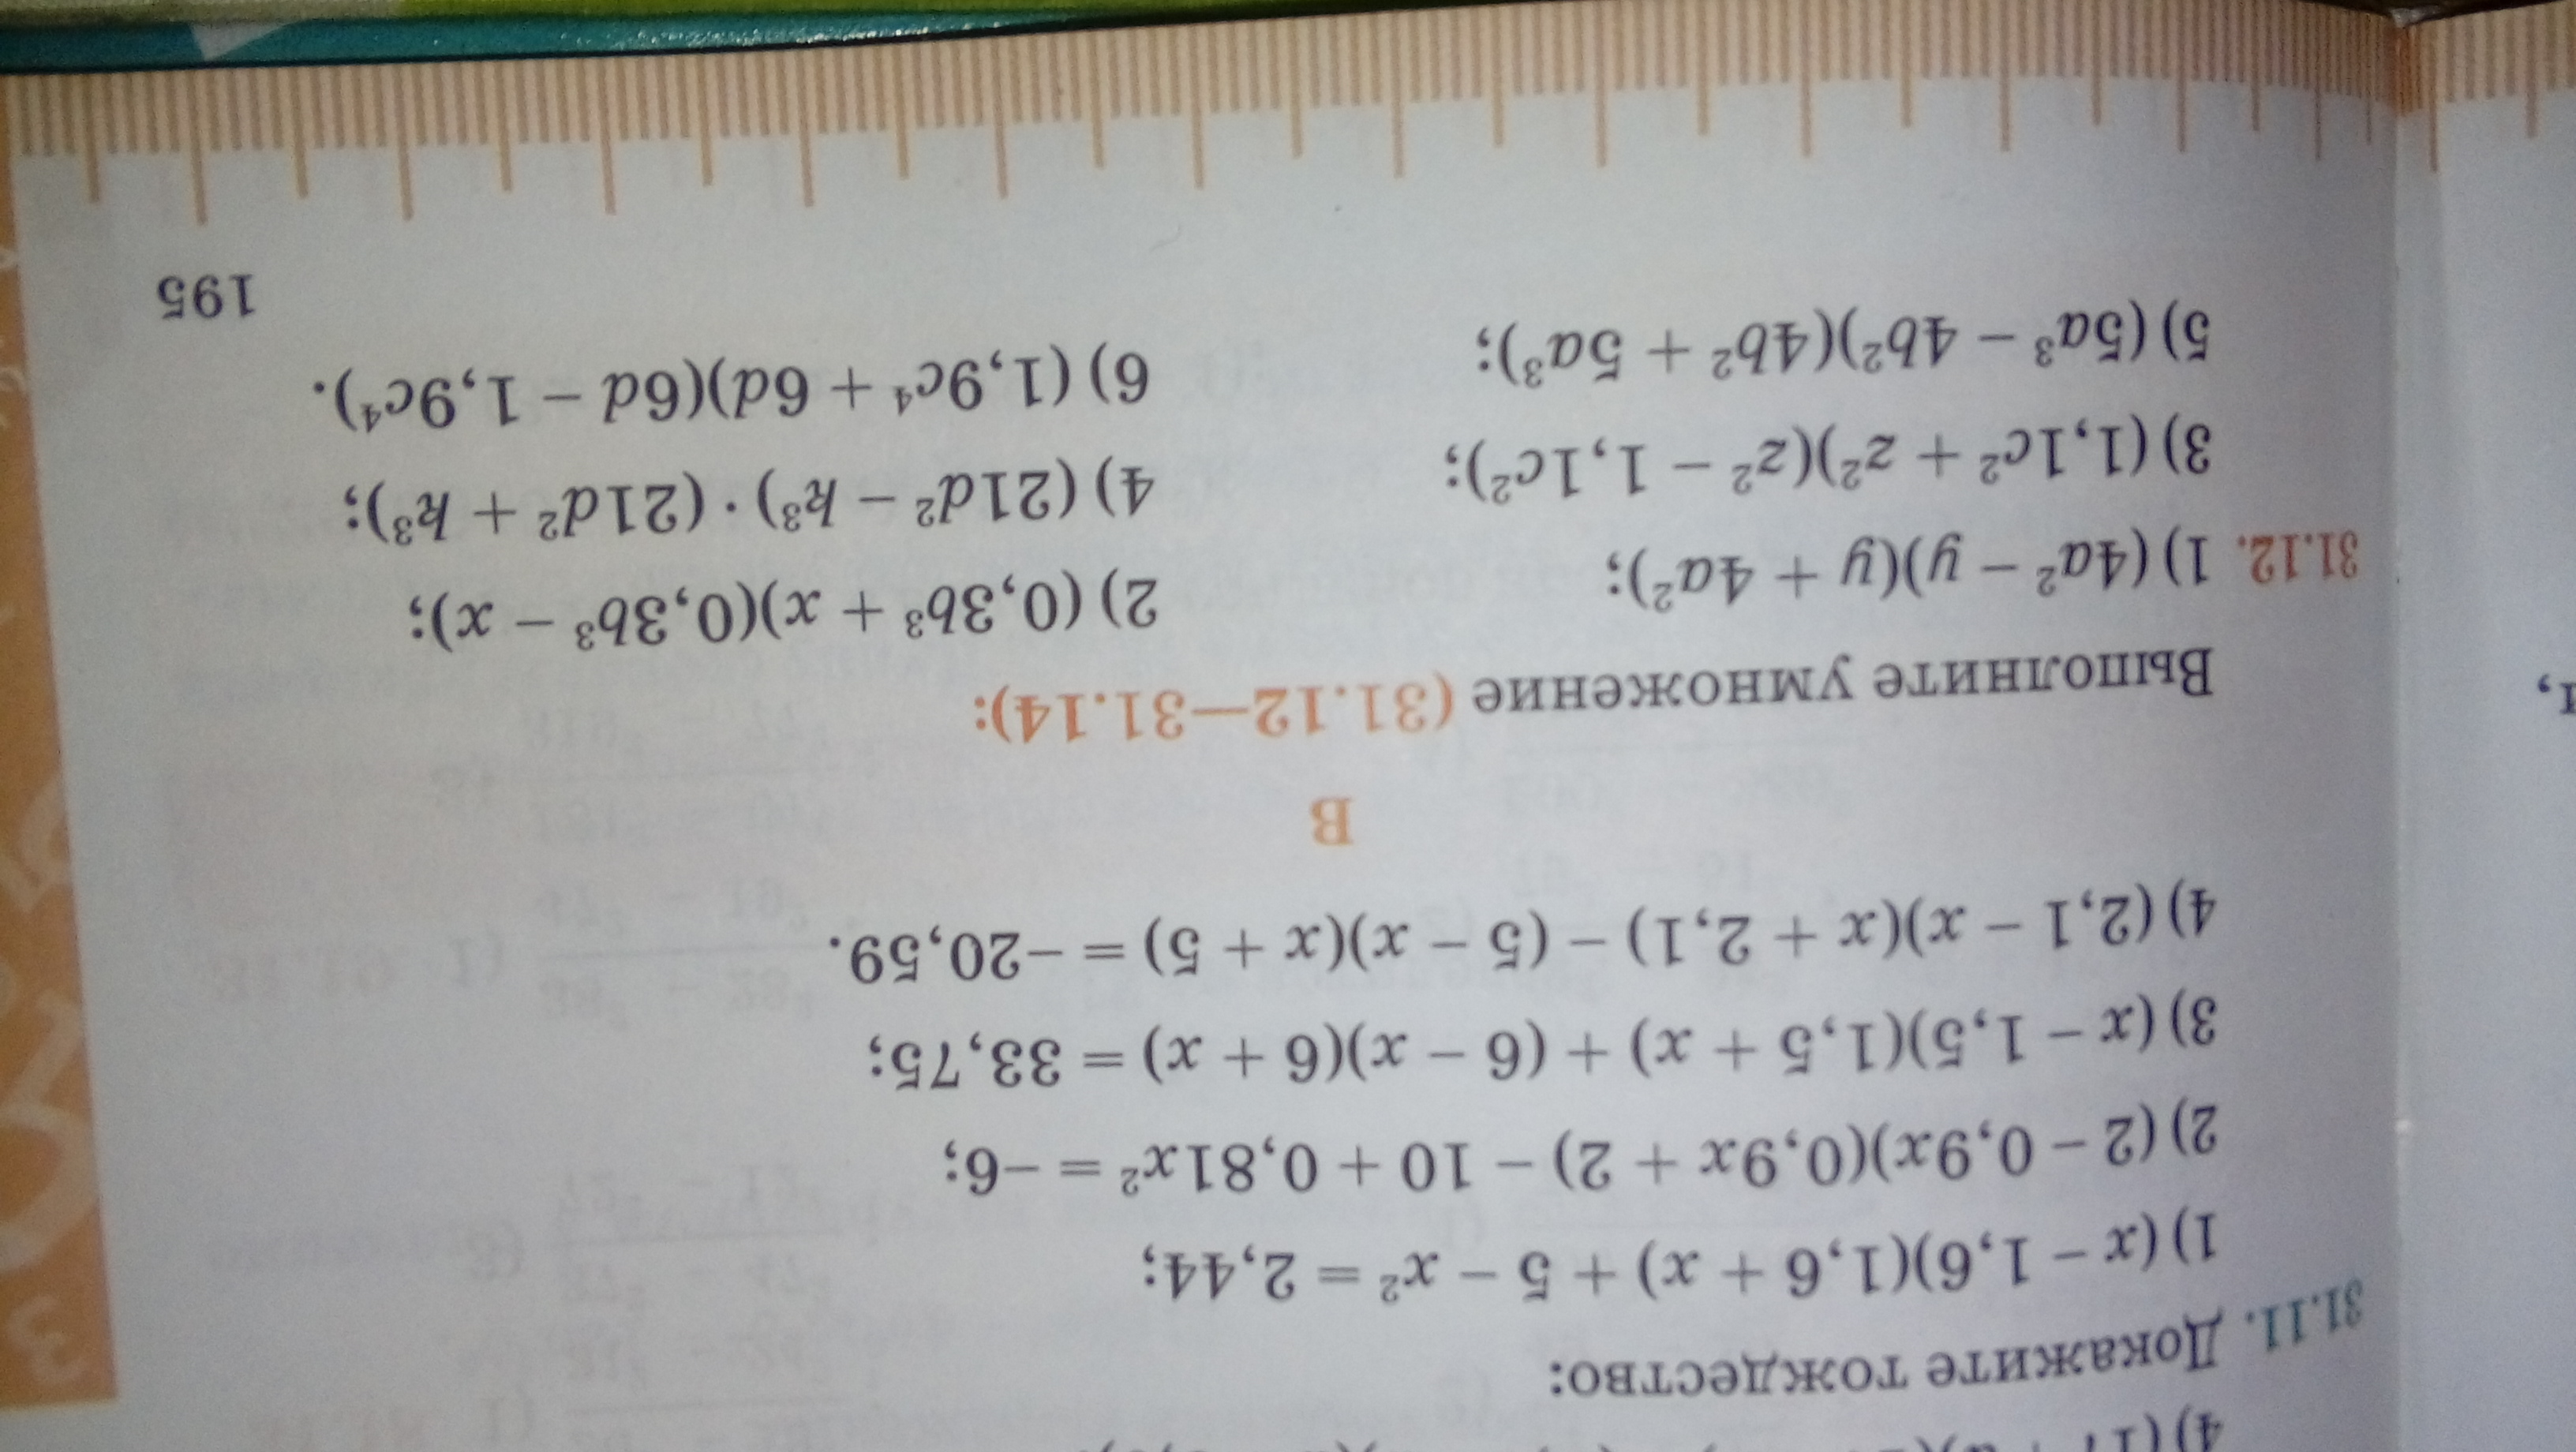 31.11. Докажите тождество:
1) (x − 1,6)(1,6 + x) + 5 − x² = 2,44;
2) (2 − 0,9x)(0,9x + 2) − 10 + 0,81x² = −6;
3) (x − 1,5)(1,5 + x) + (6 − x)(6 + x) = 33,75;
4) (2,1 − x)(x + 2,1) − (5 − x)(x + 5) = −20,59.
В
Выполните умножение (31.12—31.14):
31.12. 1) (4a² − y)(y + 4a²); 2) (0,3b³ + x)(0,3b³ − x);
3) (1,1c² + z²)(z² − 1,1c²); 4) (21d² − k³) · (21d² + k³);
5) (5a³ − 4b²)(4b² + 5a³); 6) (1,9c⁴ + 6d)(6d − 1,9c⁴).
195